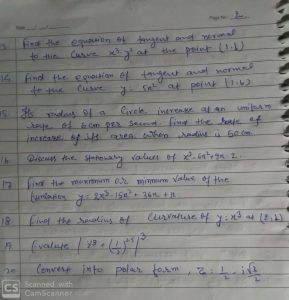 Page No.
Date
find the equation of tangent and normal
to the curve x³ = y² at the point (1,1)
14 find the equation of tangent and normal
to the curve y = 5x² at point (1,6)
15 If radius of a circle increase at an uniform
rate of 6 cm per second find the rate of
increase of its area when radius is 50 cm.
16 Discuss the stationary values of x³-6x²+9x-2.
17 find the maximum or minimum value of the
function y = 2x³-15x²+36x+
18 find the radius of curvature of y = x³ at (2,
19 Evaluate
20 Convert into polar form, Z =
CS Scanned with
CamScanner